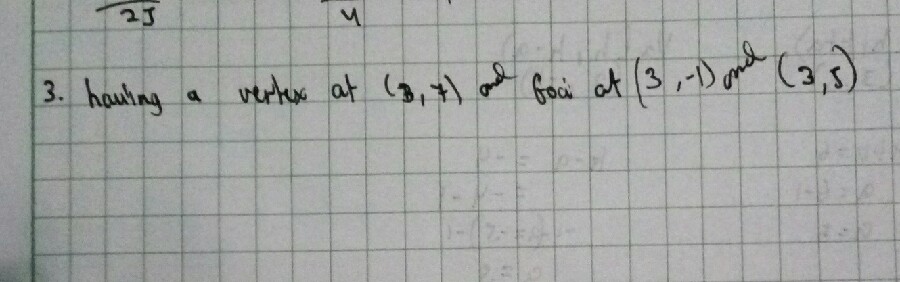 25 4
3. having a vertex at (3,7) and foci at (3,-1) and (3,5)